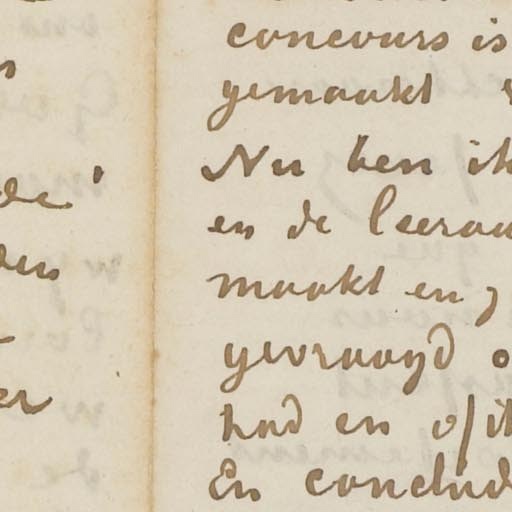 de'
den
er
concours is
gemaakt
Nu ben ik
en de leeraa
maakt en
gevraagd o
had en of ik
En conclud